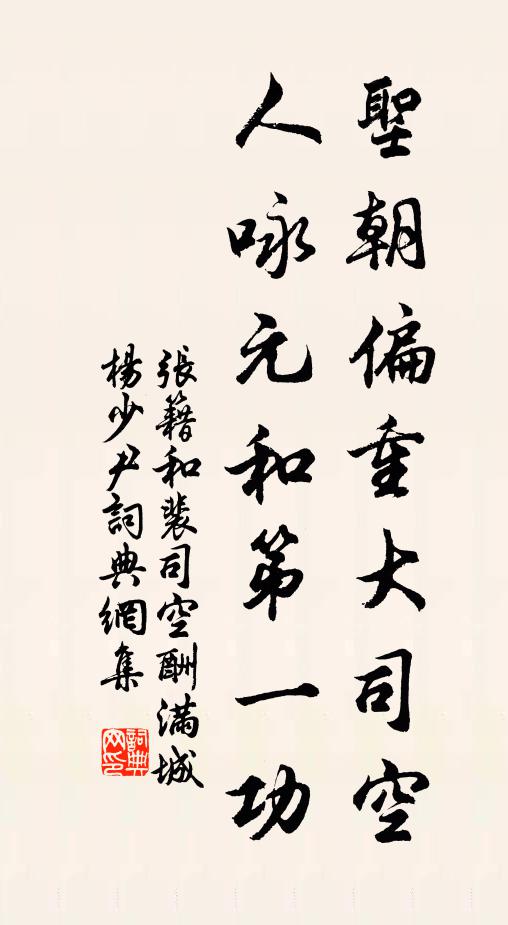 聖朝偏重大司空
人咏元和第一功
張籍和裴司空酬滿城
楊少尹詞典網集
詞典
网印